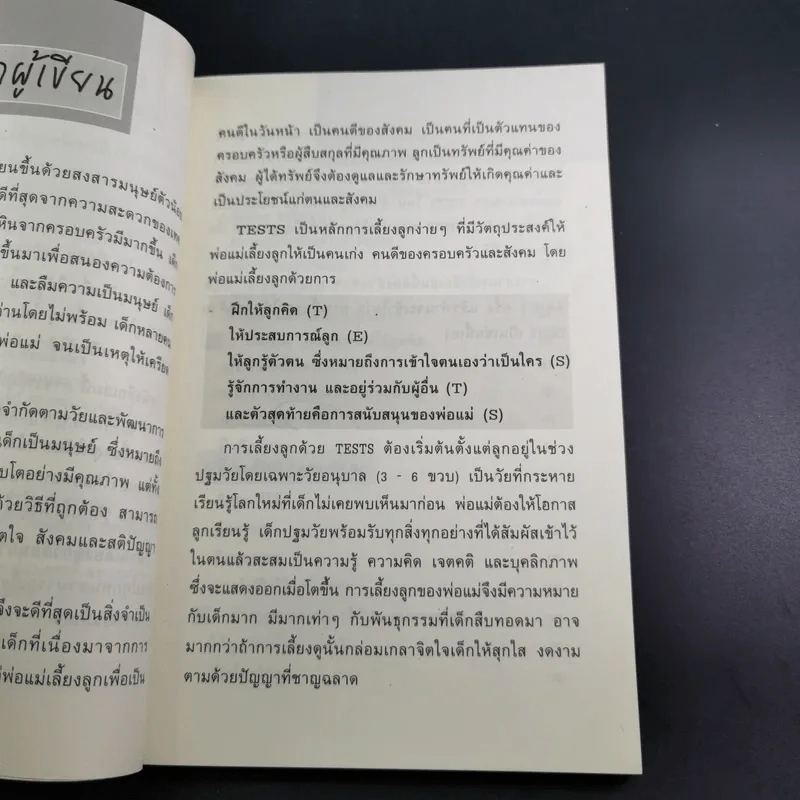 ผู้เขียน
ขึ้นด้วยสงสารมนุษย์ตัวน้อย
ดีที่สุดจากความสะดวกของ
หินจากครอบครัวมีมากขึ้น เด็ก
ขึ้นมาเพื่อสนองความต้องการ
และลืมความเป็นมนุษย์ เด็ก
โดยไม่พร้อม เด็กหลายคน
พ่อแม่ จนเป็นเหตุให้เครียด
จำกัดตามวัยและพัฒนาการ
เด็กเป็นมนุษย์ ซึ่งหมายถึง
โตอย่างมีคุณภาพ แต่ทั้ง
ด้วยวิธีที่ถูกต้อง สามารถ
สังคมและสติปัญญา
จึงจะดีที่สุดเป็นสิ่งจำเป็น
เด็กที่เนื่องมาจากการ
พ่อแม่เลี้ยงลูกเพื่อเป็น
คนดีในวันหน้า เป็นคนดีของสังคม เป็นคนที่เป็นตัวแทนของ
ครอบครัวหรือผู้สืบสกุลที่มีคุณภาพ ลูกเป็นทรัพย์ที่มีคุณค่าของ
สังคม ผู้ได้ทรัพย์จึงต้องดูแลและรักษาทรัพย์ให้เกิดคุณค่าและ
เป็นประโยชน์แก่ตนและสังคม
TESTS เป็นหลักการเลี้ยงลูกง่ายๆ ที่มีวัตถุประสงค์ให้
พ่อแม่เลี้ยงลูกให้เป็นคนเก่ง คนดีของครอบครัวและสังคม โดย
พ่อแม่เลี้ยงลูกด้วยการ
ฝึกให้ลูกคิด (T)
ให้ประสบการณ์ลูก (E)
ให้ลูกรู้ตัวตน ซึ่งหมายถึงการเข้าใจตนเองว่าเป็นใคร (S)
รู้จักการทำงาน และอยู่ร่วมกับผู้อื่น (T)
และตัวสุดท้ายคือการสนับสนุนของพ่อแม่ (S)
การเลี้ยงลูกด้วย TESTS ต้องเริ่มต้นตั้งแต่ลูกอยู่ในช่วง
ปฐมวัยโดยเฉพาะวัยอนุบาล (3 - 6 ขวบ) เป็นวัยที่กระหาย
เรียนรู้โลกใหม่ที่เด็กไม่เคยพบเห็นมาก่อน พ่อแม่ต้องให้โอกาส
ลูกเรียนรู้ เด็กปฐมวัยพร้อมรับทุกสิ่งทุกอย่างที่ได้สัมผัสเข้าไว้
ในตนแล้วสะสมเป็นความรู้ ความคิด เจตคติ และบุคลิกภาพ
ซึ่งจะแสดงออกเมื่อโตขึ้น การเลี้ยงลูกของพ่อแม่จึงมีความหมาย
กับเด็กมาก มีมากเท่าๆ กับพันธุกรรมที่เด็กสืบทอดมา อาจ
มากกว่าถ้าการเลี้ยงดูนั้นกล่อมเกลาจิตใจเด็กให้สุกใส งดงาม
ตามด้วยปัญญาที่ชาญฉลาด